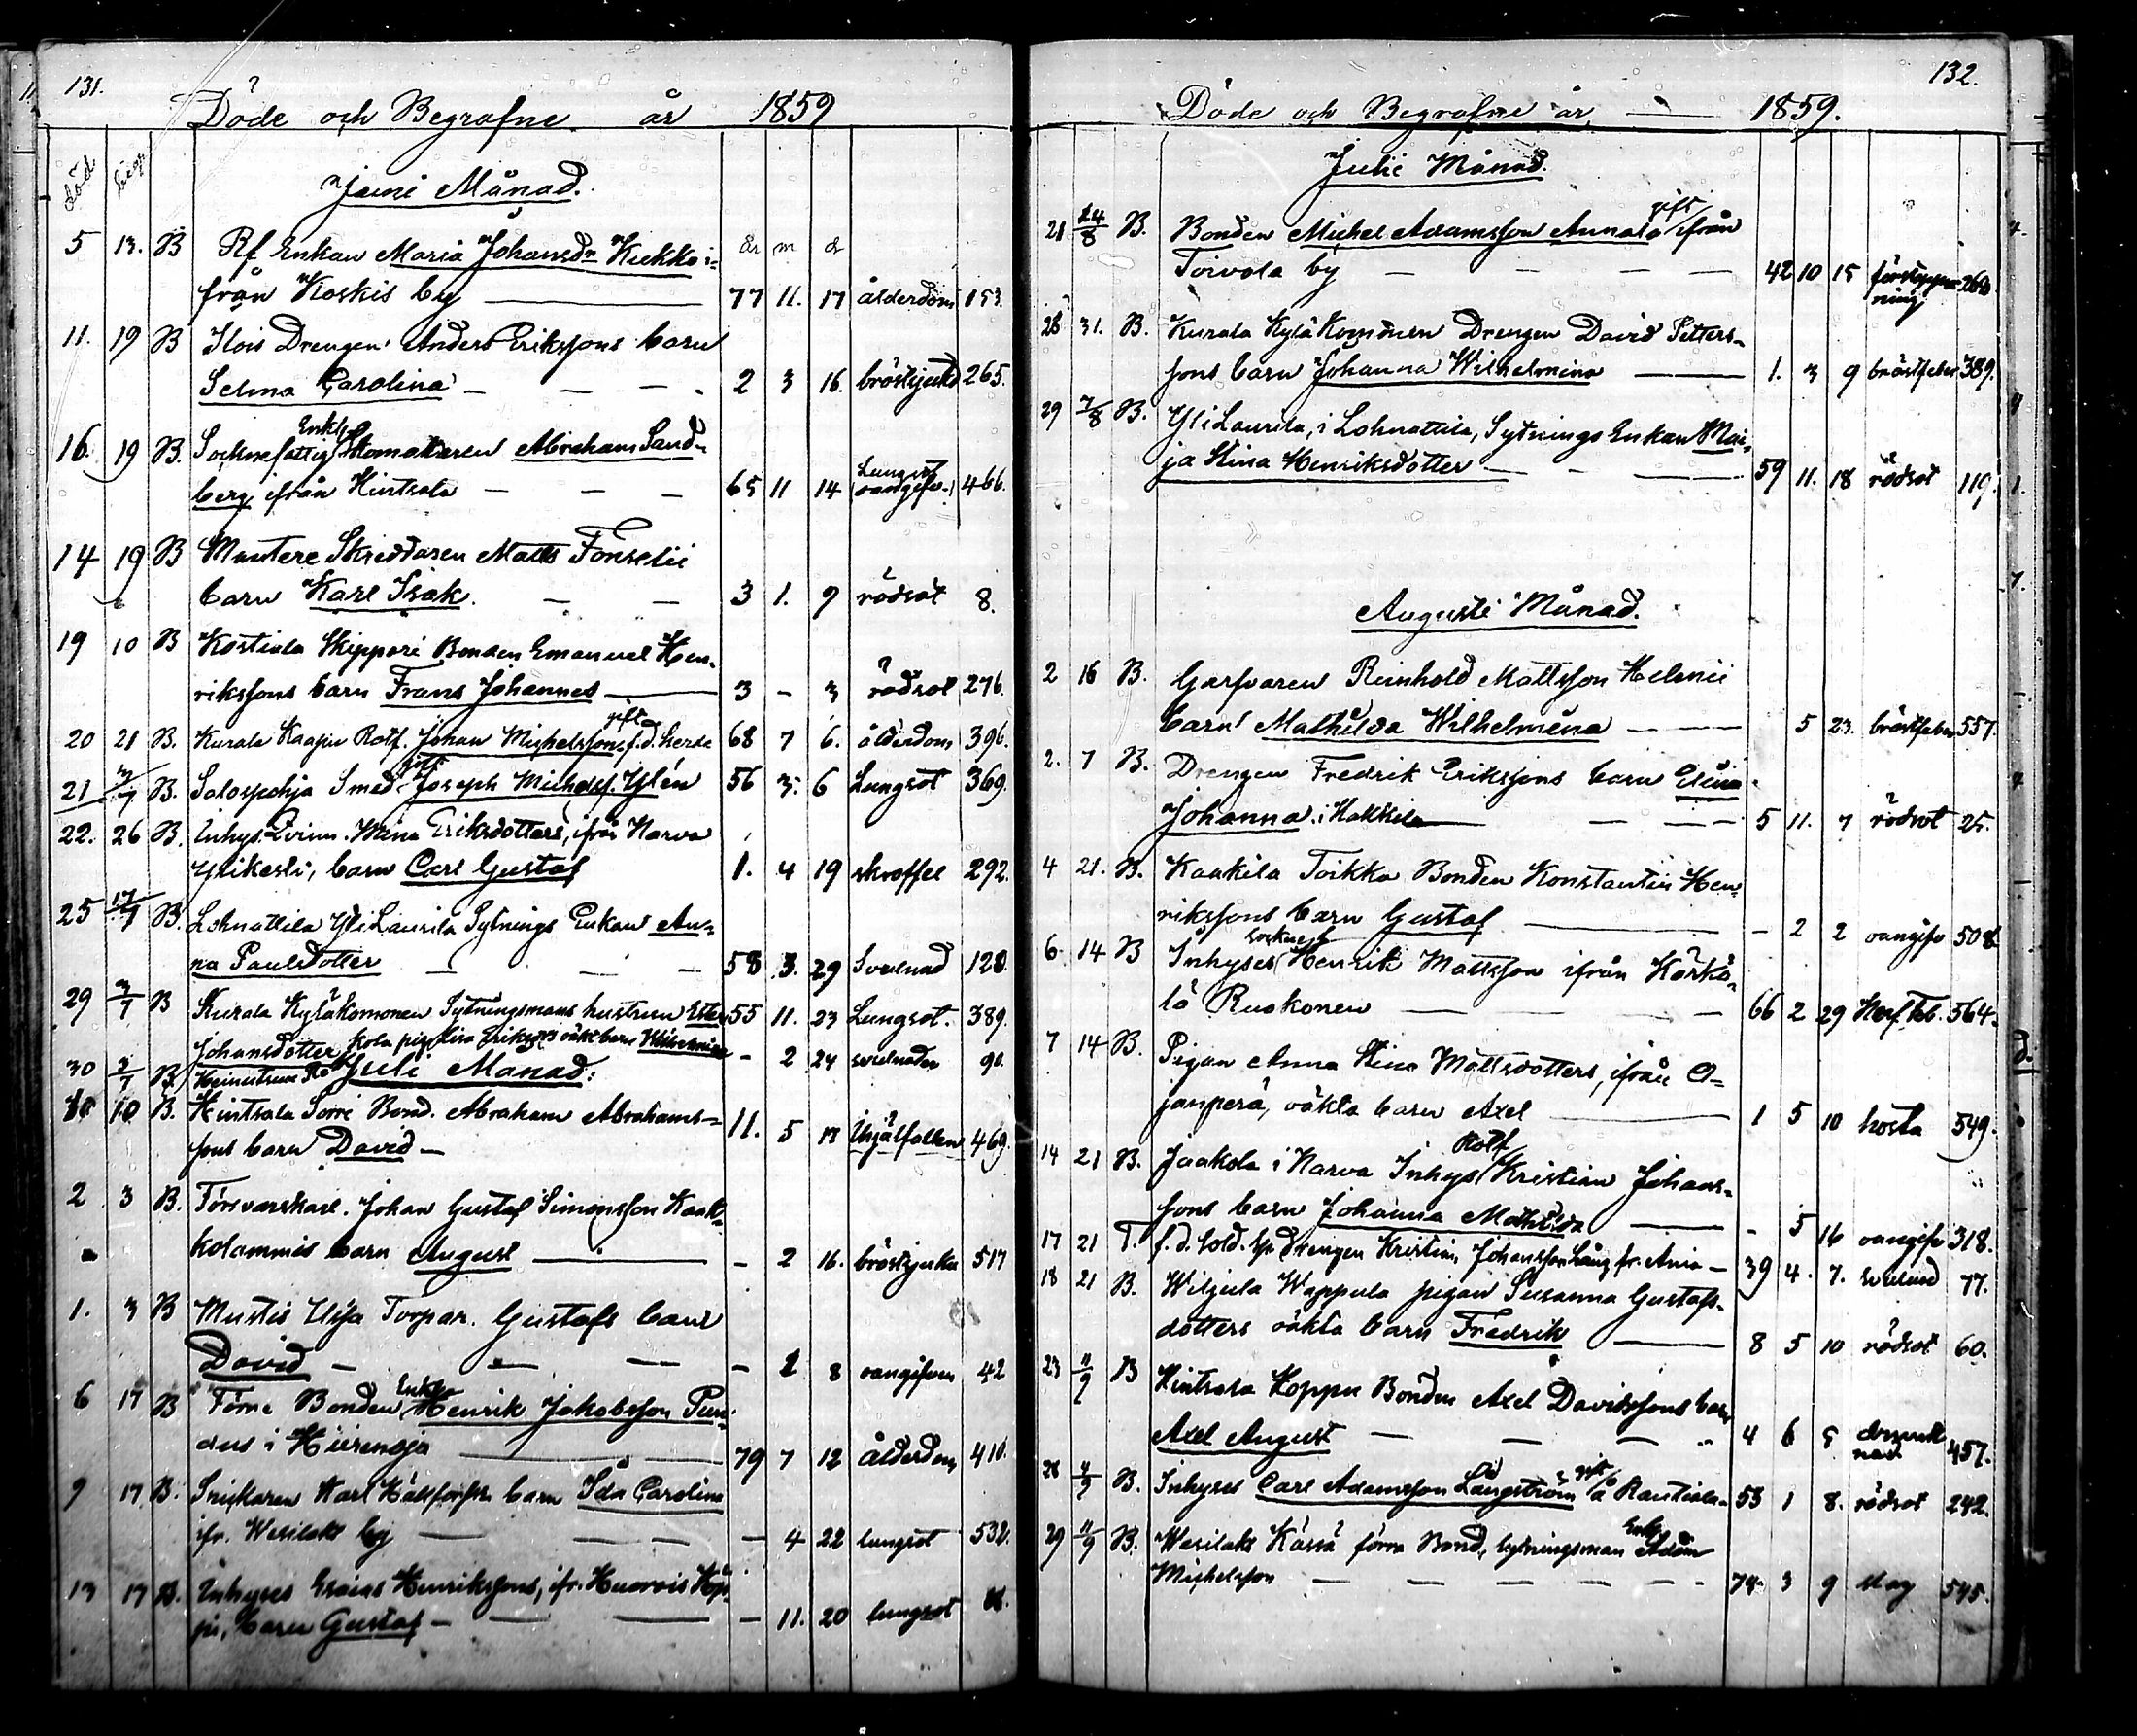 131.
Döde och Begrafne år 1859
död begr
Juni Månad.
5 13. B Rf Enkan Maria Johansdr Kukko i- år m d
från Koskis by 77 11. 17 ålderdom 153.
11. 19 B Ilois Drengen Anders Erikssons barn
Selma Carolina 2 3 16. bröstsjukd 265.
Enkl.
16. 19 B. Socknefattig Skomakaren Abraham Sand-
berg ifrån Hintsala 65 11 14 Lungsot (oangifv.) 466.
14 19 B Mantere Skreddaren Matts Fonselii
barn Karl Isak. 3 1. 9 rödsot 8.
19 10 B Kostiala Skippari Bonden Emanuel Hen-
rikssons barn Frans Johannes 3 - 3 rödsot 276.
gift
20 21 B. Kurala Kaapu Rotf. Johan Michelsson f.d. herde 68 7 6. ålderdom 396.
gift
21 B. Salospohja Smed Joseph Michelss. Ylén 56 3. 6 Lungsot 369.
22. 26 B. Inhys. Qvinn. Mina Eriksdotters, ifrån Narva
Ylikesti, barn Carl Gustaf 1. 4 19 skroffel 292.
25 17/7 B. Lohnattila Yli Laurila Sytnings Enkan An-
na Paulsdotter 58 3. 29 Svulnad 128.
29 3/7 B Kurala Kyläkomonen Sytningsmans hustrun Ester 55 11. 23 Lungsot. 389.
Johansdotter
30 3/7 B. kola pig. Lisa Eriksd:s oäkt barn Wilhelmina - 2 24 svulnaden 90.
Juli Månad:
10 B. Hintsala Sorri Bond. Abraham Abrahams-
sons barn David 11. 5 17 Ihjälfallen 469.
2 3 B. Försvarskarl. Johan Gustaf Simonsson Kaak-
kolammis barn August - 2 16. bröstsjuka 517
1. 3 B Mustis Uusja Torpar. Gustafs barn
David - 2 8 oangifven 42
Enkl
6 17 B Förra Bonden Henrik Jakobsson Pun-
dus i Hiirenoja 79 7 12 ålderdom 410.
9 17 B. Snickaren Karl Hallforss barn Ida Carolina
ifr. Wesilaks by - 4 22 lungsot 532.
13 17 B. Inhyses Esaias Henrikssons, ifr. Huovois Hop-
pu, barn Gustaf - 11. 20 lungsot
132.
Döde och Begrafne år 1859.
Julii Månad.
gift
21 24/8 B. Bonden Michel Adamsson Annala ifrån
Toivola by 42 10 15 förstoppning 260.
28 31. B. Kurala Kylä Komonen Drengen David Petters-
sons barn Johanna Wilhelmina 1. 3 9 bröstfeber 389.
29 7/8 B. Yli Laurila, i Lohnattila, Sytnings Enkan Mai-
ja Stina Henriksdotter 59 11. 18 rödsot 119.
Augusti Månad.
2 16 B. Garfvaren Reinhold Mattsson Helenii
barn Mathilda Wilhelmina 5 23. bröstfeber 557.
2. 7 B. Drengen Fredrik Erikssons barn Elina
Johanna i Kakkila 5 11. 7 rödsot 25.
4 21. B. Kaakila Toikka Bonden Konstantin Hen-
rikssons barn Gustaf - 2 2 oangifv 508.
6. 14 B Inhyses Henrik Mattsson ifrån Kärkä-
lä Ruokonen 66 2 29 564.
7 14 B. Pigan Anna Stina Mattsdotters, ifrån O-
janperä, oäkta barn Axel 1 5 10 hosta 549.
Rotf
14 21 B. Jaakola i Narva Inhys Kristian Johans-
sons barn Johanna Mathilda - 5 16 oangifv 318.
17 21 T. f.d. Sold. Drengen Kristian Johansson Lång fr. Ania 39 4. 7. svulnad 77.
18 21 B. Wiljula Wappula pigan Susanna Gustafs-
dotters oäkta barn Fredrik 8 5 10 rödsot 60.
23 11/9 B Hintsala Koppu Bonden Axel Davidssons barn
Axel August 4 6 457.
gift
28 4/9 B. Inhyses Carl Adamsson Långström å Rantiala 53 1 8. rödsot 242.
Enkl
29 11/9 B. Wesilaks Kässä förra Bond. sytningsman Adam
Michelsson 74 3 9 slag 545.